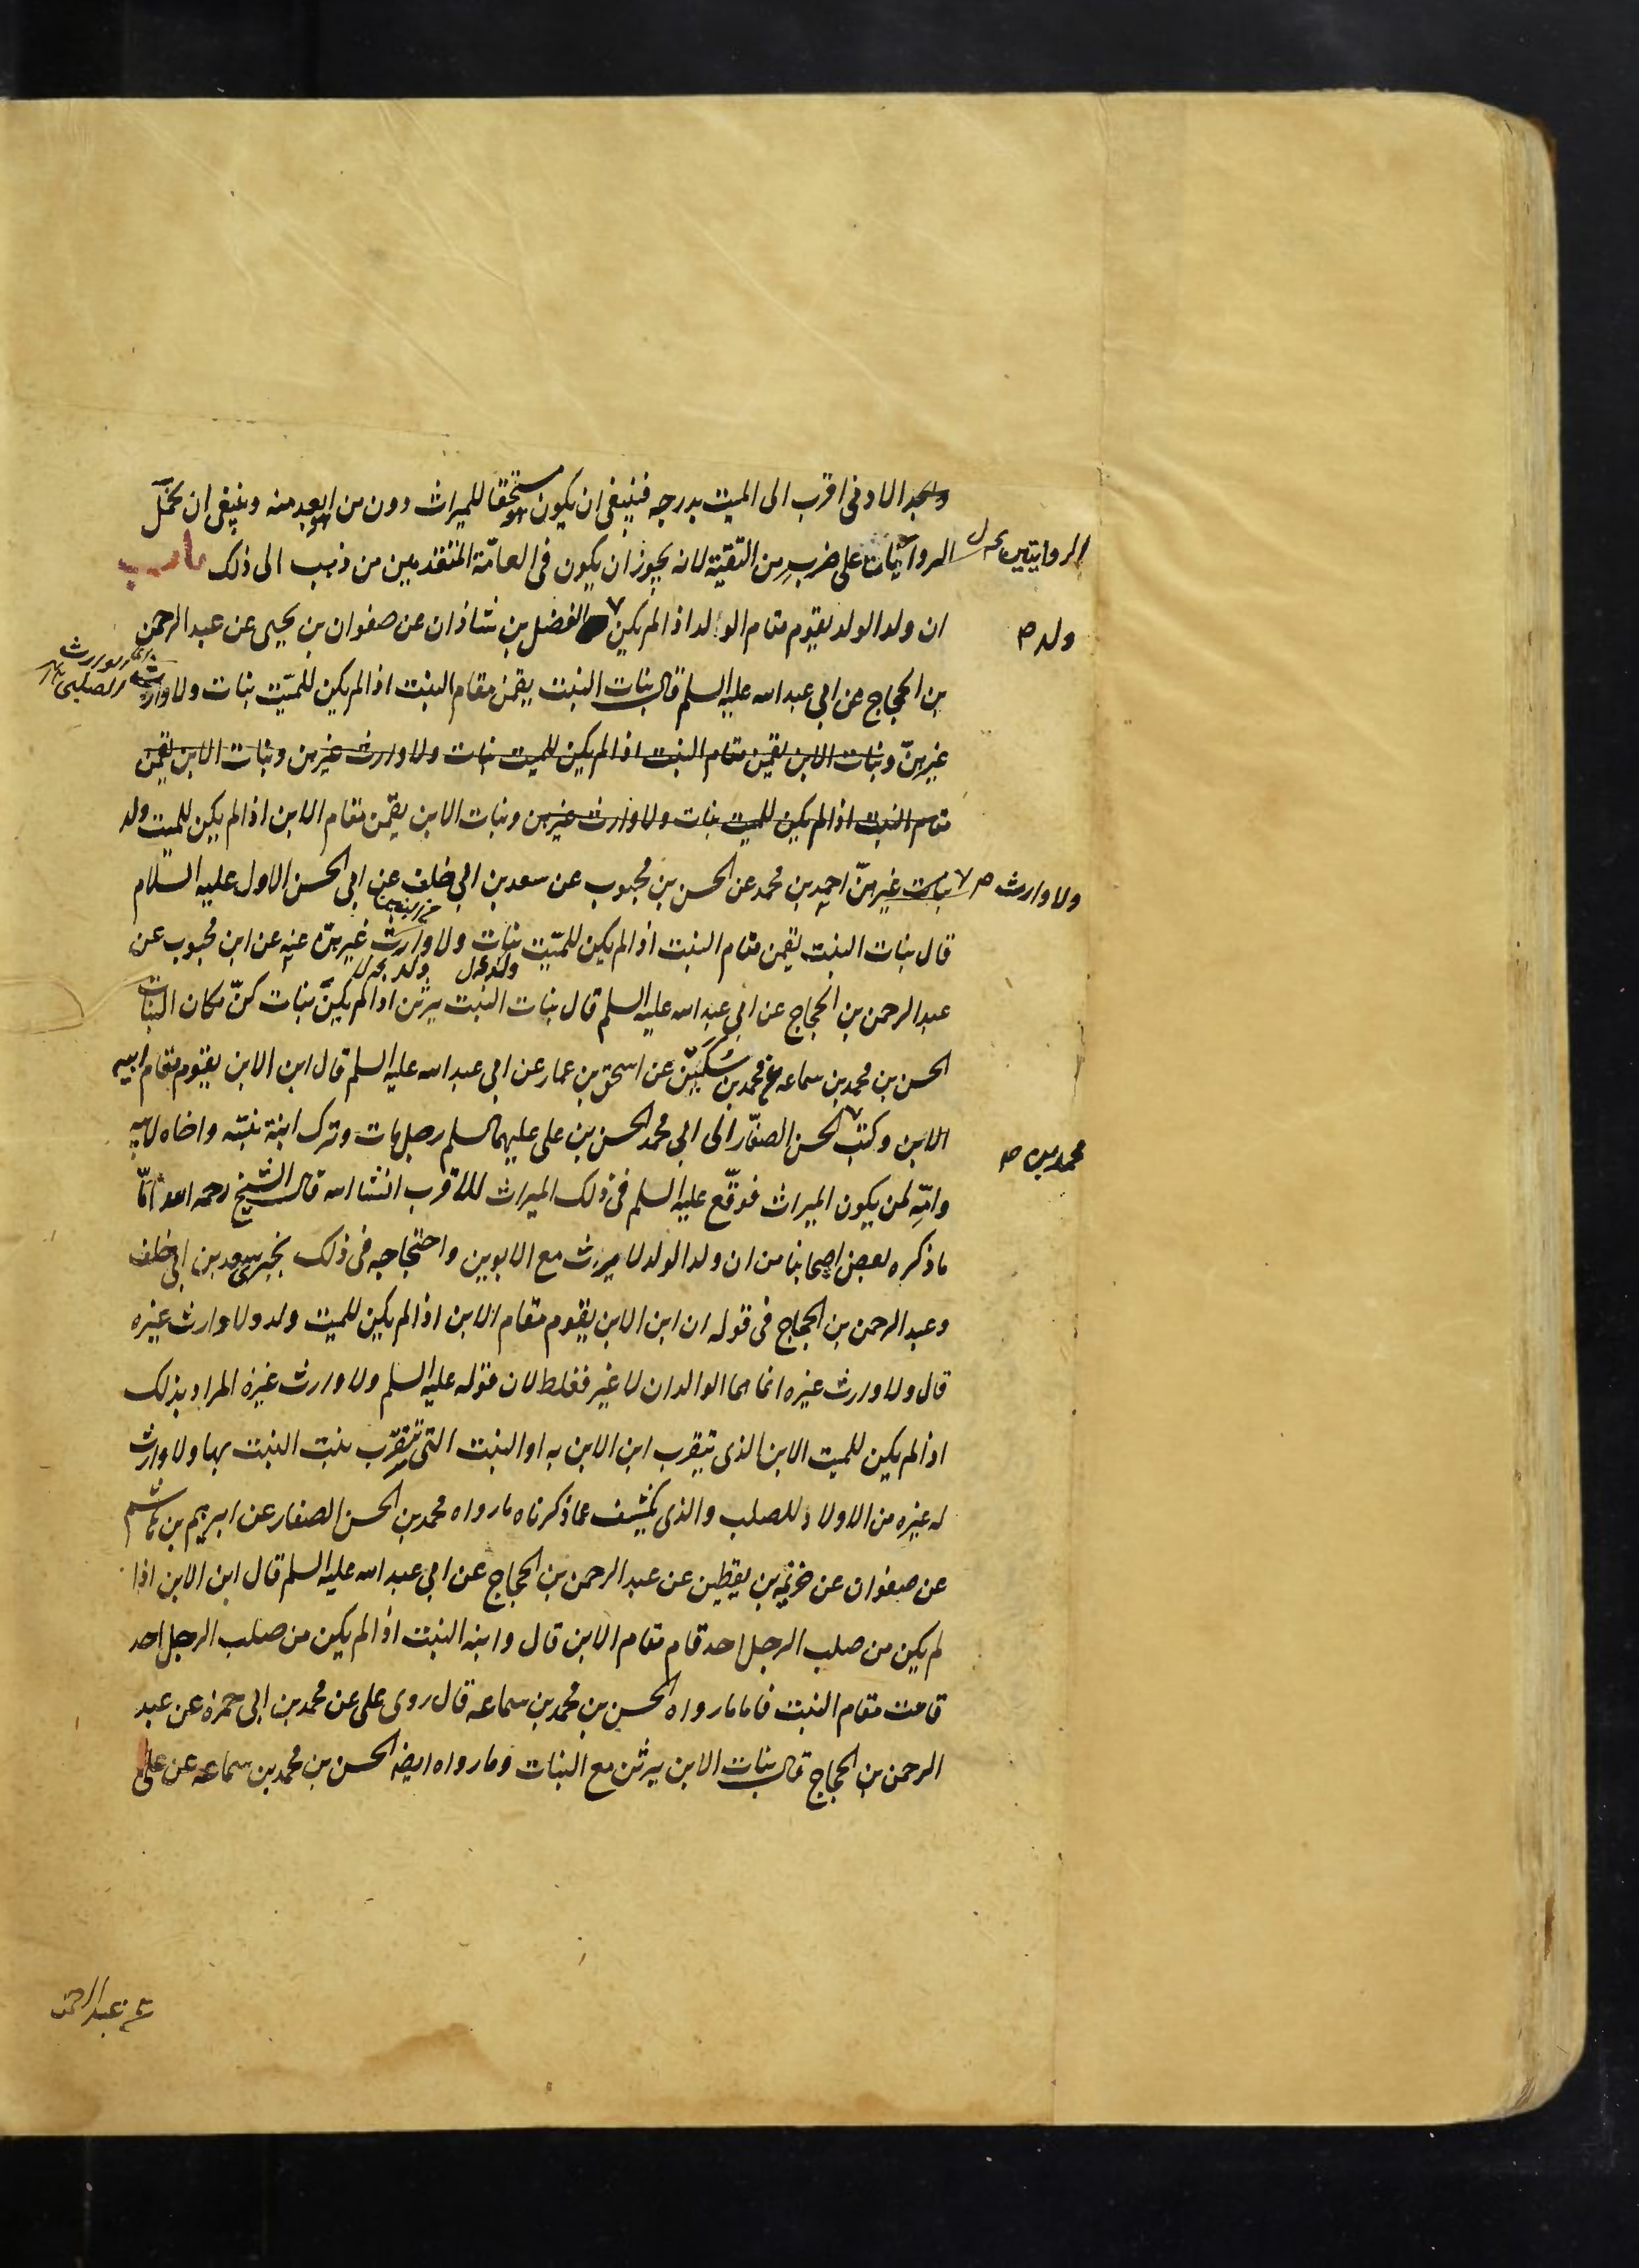 والجد الادنى اقرب الى الميت بدرجه فينبغى ان يكون مستحقا للميراث دون من هو ابعد منه وينبغى ان نحمل
الروايتين
الروايات على ضرب من التقيّة لانه يجوز ان يكون فى العامّة المتقدمين من ذهب الى ذلك باب
ان ولد الولد يقوم مقام الولد اذا لم يكن الفضل بن شاذان عن صفوان بن يحيى عن عبد الرحمن
ولد ص
بن الحجاج عن ابي عبد الله عليه السلم قال بنات البنت يقمن مقام البنت اذا لم يكن للميّت بنات ولا وارث
غيرهنّ وبنات الابن يقمن مقام البنت اذا لم يكن للميت بنات ولا وارث غيرهن وبنات الابن يقمن
مقام البنت اذا لم يكن للميت بنات ولا وارث غيرهن وبنات الابن يقمن مقام الابن اذا لم يكن للميت ولد
ولا وارث ص
بنات غيرهنّ احمد بن محمد عن الحسن بن محبوب عن سعد بن ابي خلف عن ابى الحسن الاول عليه السلام
قال بنات البنت يقمن مقام البنت اذا لم يكن للميّت بنات ولا وارث غيرهنّ عنه عن ابن محبوب عن
عبد الرحمن بن الحجاج عن ابي عبد الله عليه السلم قال بنات البنت يرثن اذا لم يكنّ بنات كنّ مكان البنات
الحسن بن محمد بن سماعه عن محمد بن سُكَين عن اسحق بن عمار عن ابي عبد الله عليه السلم قال ابن الابن يقوم مقام ابيه
الابن وكتب الحسن الصفّار الى ابي محمد الحسن بن على عليهما السلم رجل مات وترك ابنة بنته واخاه لابيه
محمد بن ص
وامّه لمن يكون الميراث فوقّع عليه السلم فى ذلك الميراث للاقرب انشا الله قال الشيخ رحمه الله امّا
ما ذكره بعض اصحابنا من ان ولد الولد لا يرث مع الابوين واحتجاجه فى ذلك بخبر سعد بن ابى خلف
وعبد الرحمن بن الحجاج فى قوله ان ابن الابن يقوم مقام الابن اذا لم يكن للميت ولد ولا وارث غيره
قال ولا وارث غيره انما هما الوالدان لا غير فغلط لان قوله عليه السلم ولا وارث غيره المراد بذلك
اذا لم يكن للميت الابن الذى يتقرب ابن الابن به او البنت التى تتقرّب بنت البنت بها ولا وارث
له غيره من الاولاد للصلب والذى يكشف عما ذكرناه ما رواه محمد بن الحسن الصفار عن ابرهيم بن هاشم
عن صفوان عن خزيمه بن يقطين عن عبد الرحمن بن الحجاج عن ابي عبد الله عليه السلم قال ابن الابن اذا
لم يكن من صلب الرجل احد قام مقام الابن قال وابنه البنت اذا لم يكن من صلب الرجل احد
قامت مقام البنت فاما ما رواه الحسن بن محمد بن سماعه قال روى على عن محمد بن ابى حمزه عن عبد
الرحمن بن الحجاج قال بنات الابن يرثن مع البنات وما رواه ايضه الحسن بن محمد بن سماعه عن على
عن عبد الرحمن